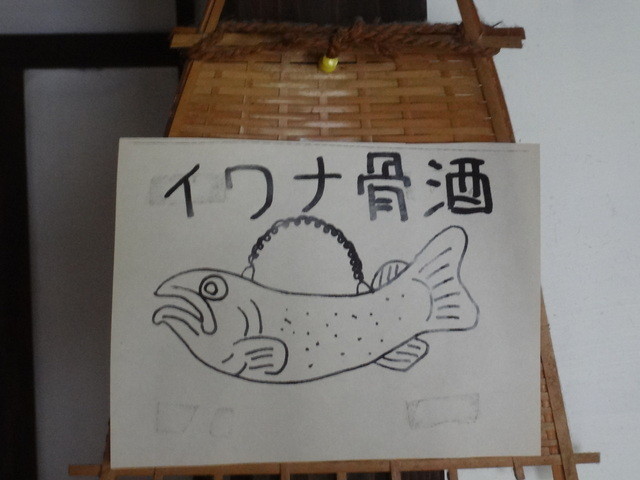 イワナ骨酒